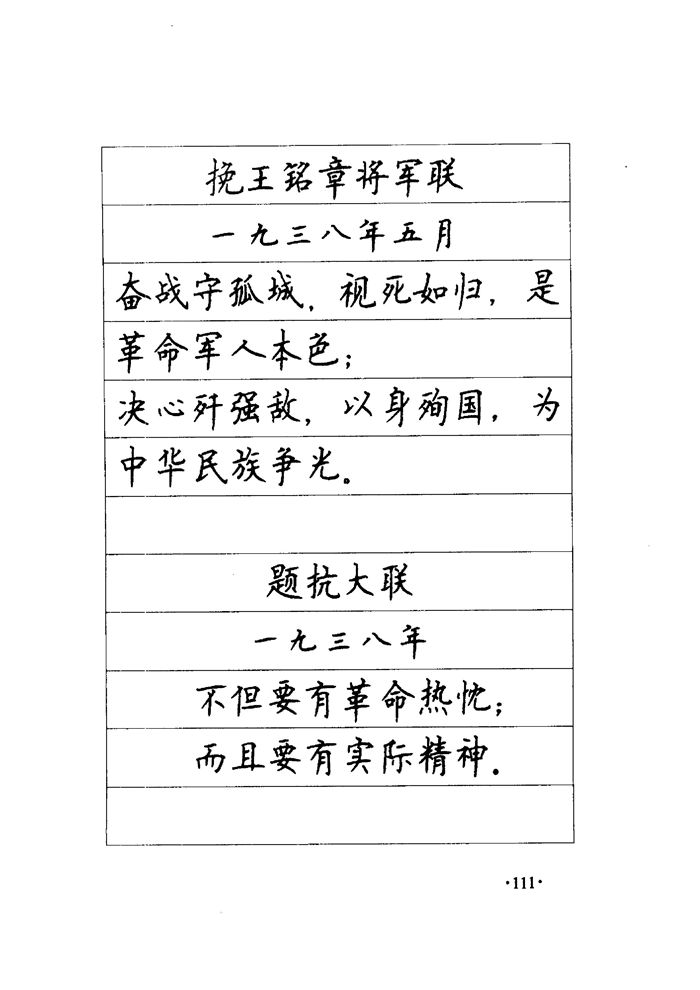 挽王铭章将军联
一九三八年五月
奋战守孤城，视死如归，是
革命军人本色；
决心歼强敌，以身殉国，为
中华民族争光。
题抗大联
一九三八年
不但要有革命热忱；
而且要有实际精神。
·111·